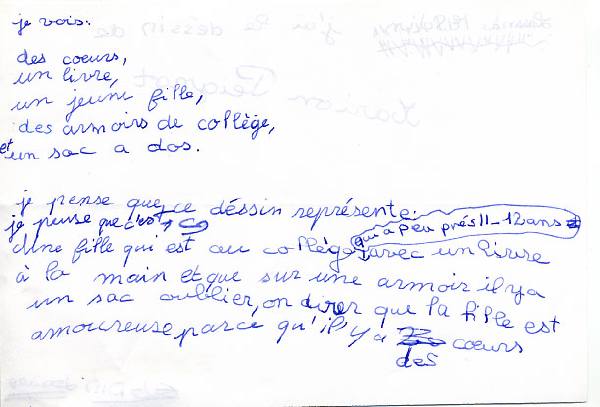 j'ai le dessin de
je vois:
des coeurs,
un livre,
un jeune fille,
des armoirs de collège,
et un sac a dos.
je pense que ce déssin représente:
je pense que c'est
d'une fille qui est au collège, qui a peu prés 11-12 ans avec un livre
à la main et que sur une armoir il y a
un sac oublier, on direr que la fille est
amoureuse parce qu'il y a des coeurs